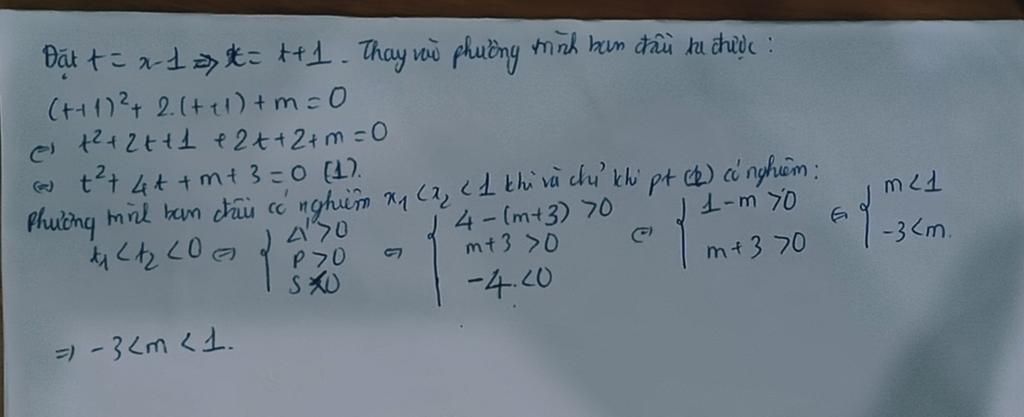 Đặt t = x-1 => x = t+1. Thay vào phường trình ban đầu ta được:
(t+1)² + 2.(t+1) + m = 0
<=> t² + 2t + 1 + 2t + 2 + m = 0
<=> t² + 4t + m + 3 = 0 (1).
Phường trình ban đầu có nghiệm x₁ < x₂ < 1 khi và chỉ khi pt (1) có nghiệm:
t₁ < t₂ < 0 <=> { Δ' > 0 <=> { 4 - (m+3) > 0 <=> { 1 - m > 0 <=> { m < 1
P > 0 m + 3 > 0 m + 3 > 0 -3 < m.
S < 0 -4 < 0
=> -3 < m < 1.